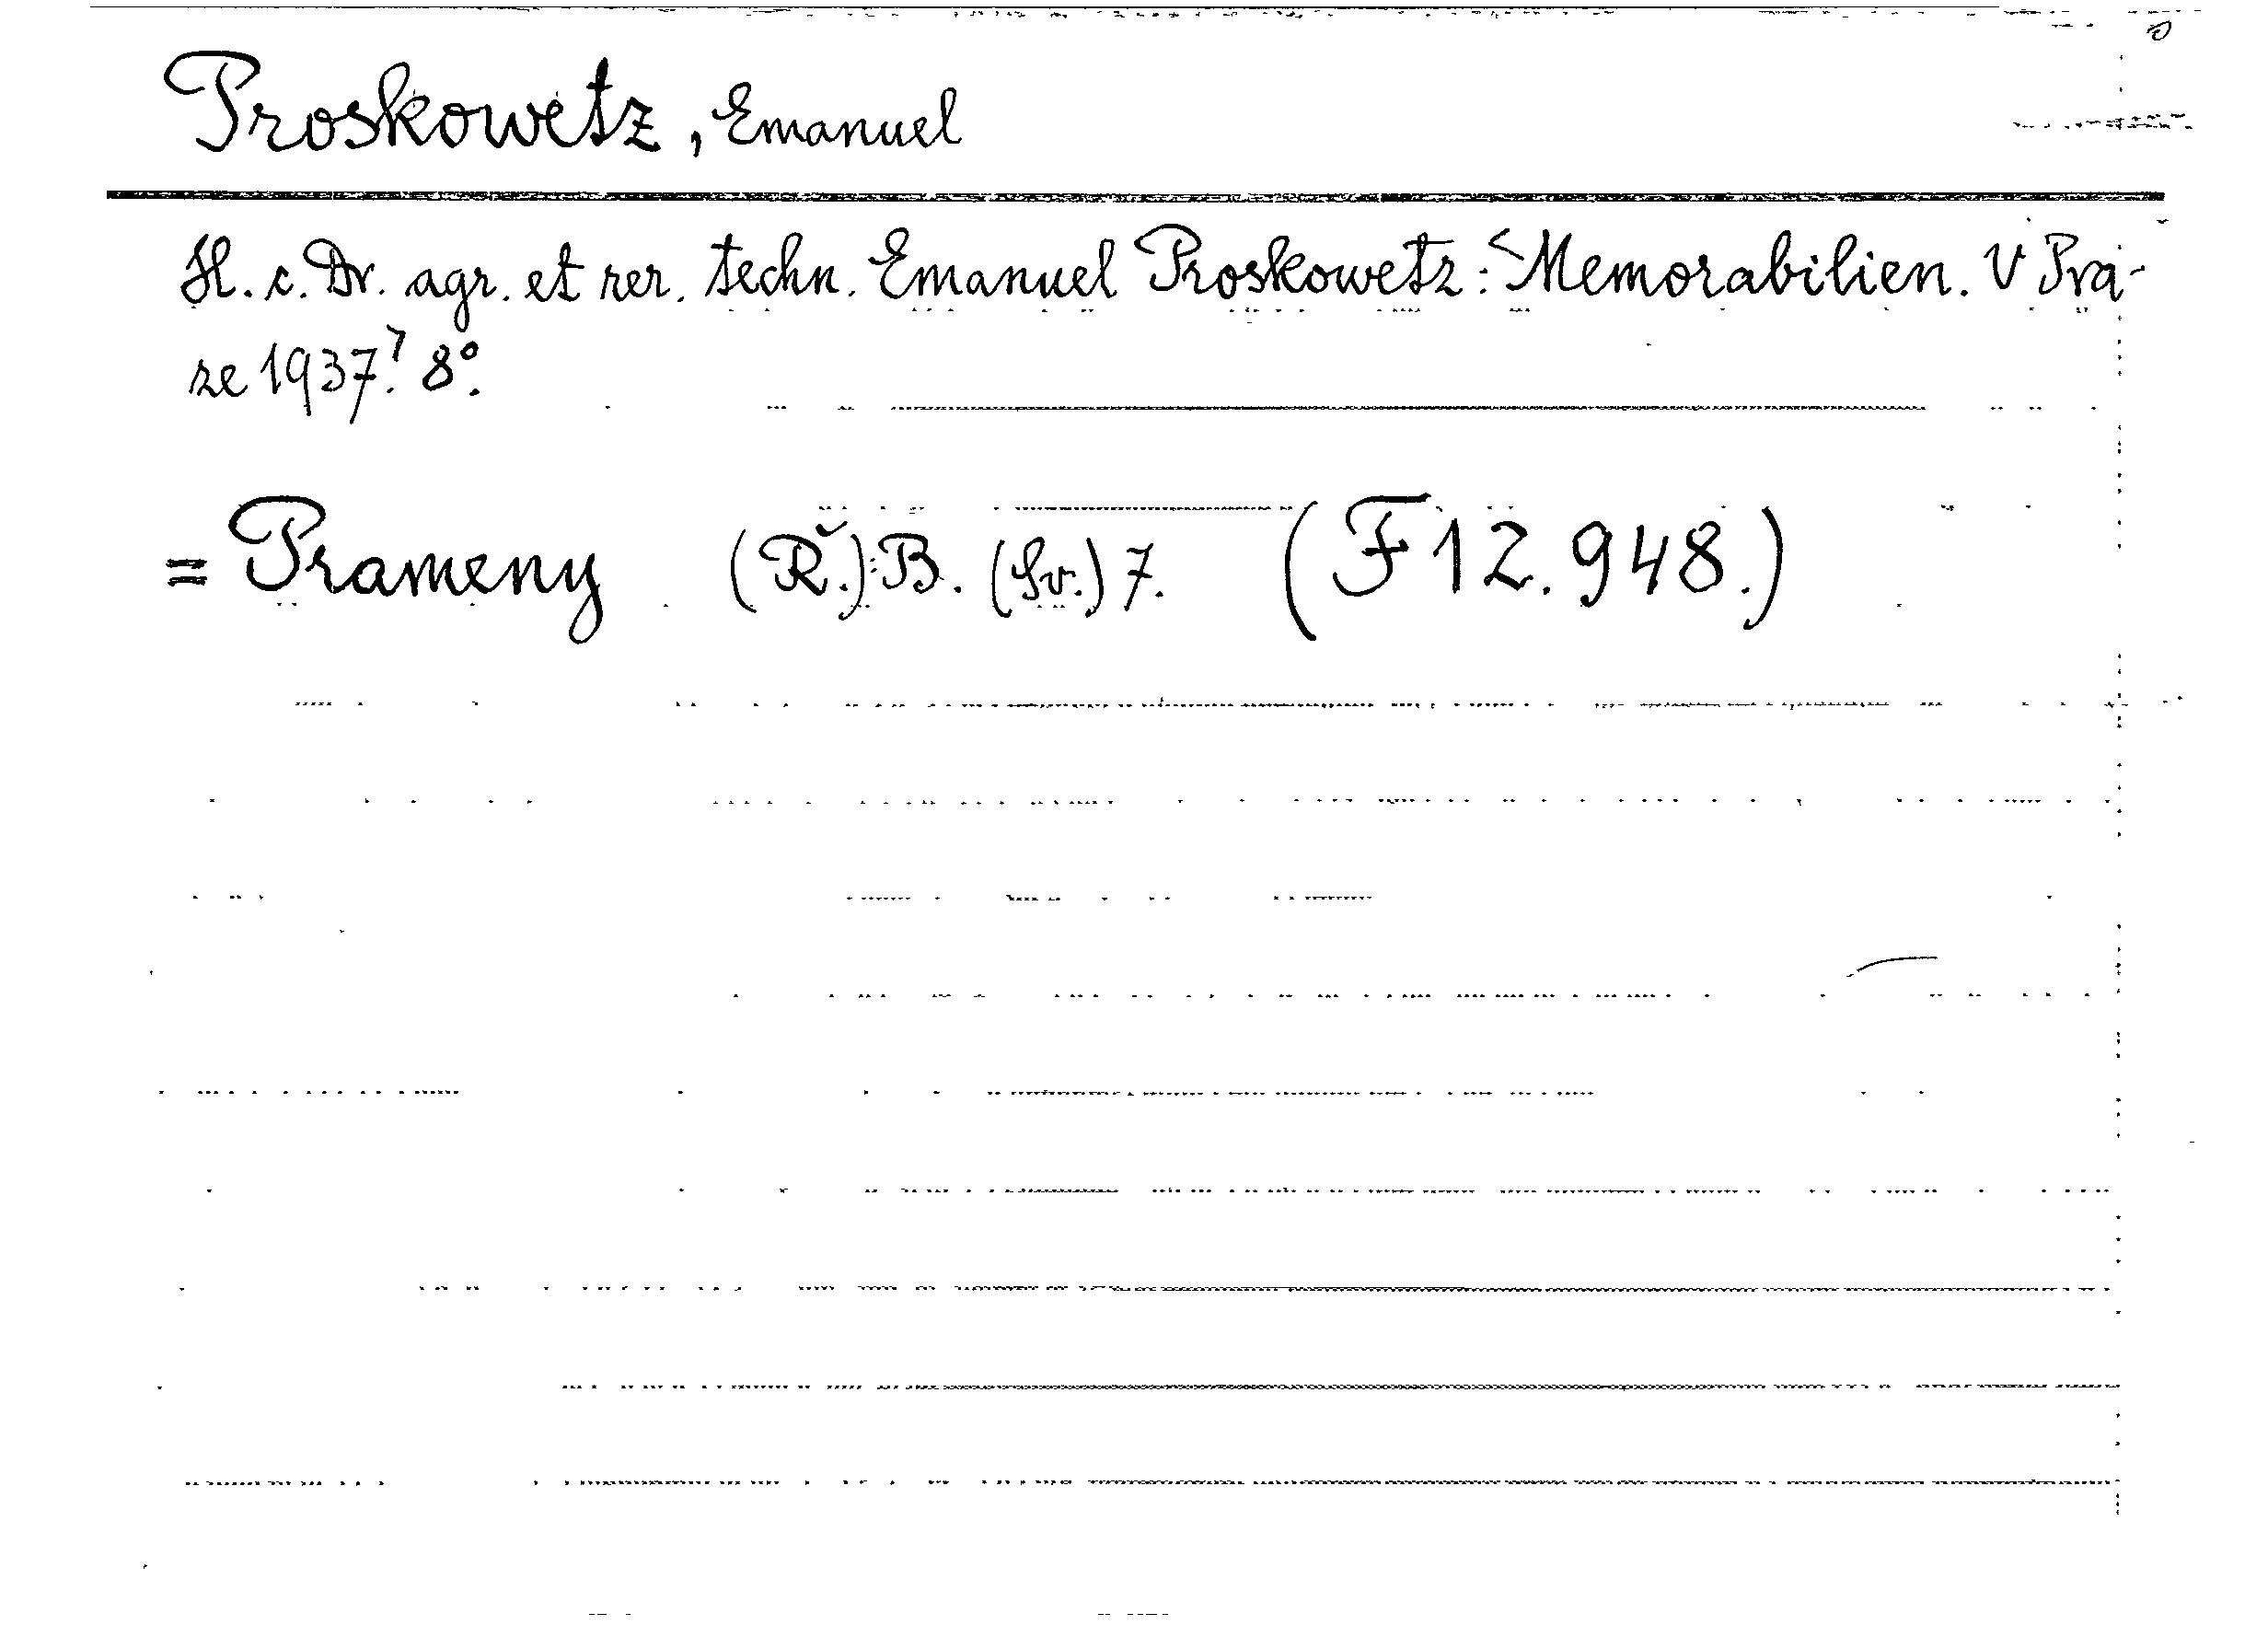 Proskowetz, Emanuel
H. c. Dr. agr. et rer. techn. Emanuel Proskowetz: <Memorabilien. V Pra-
ze 1937.> 8º.
= Prameny (Ř.) : B. (Sv.) 7. (F 12.948.)